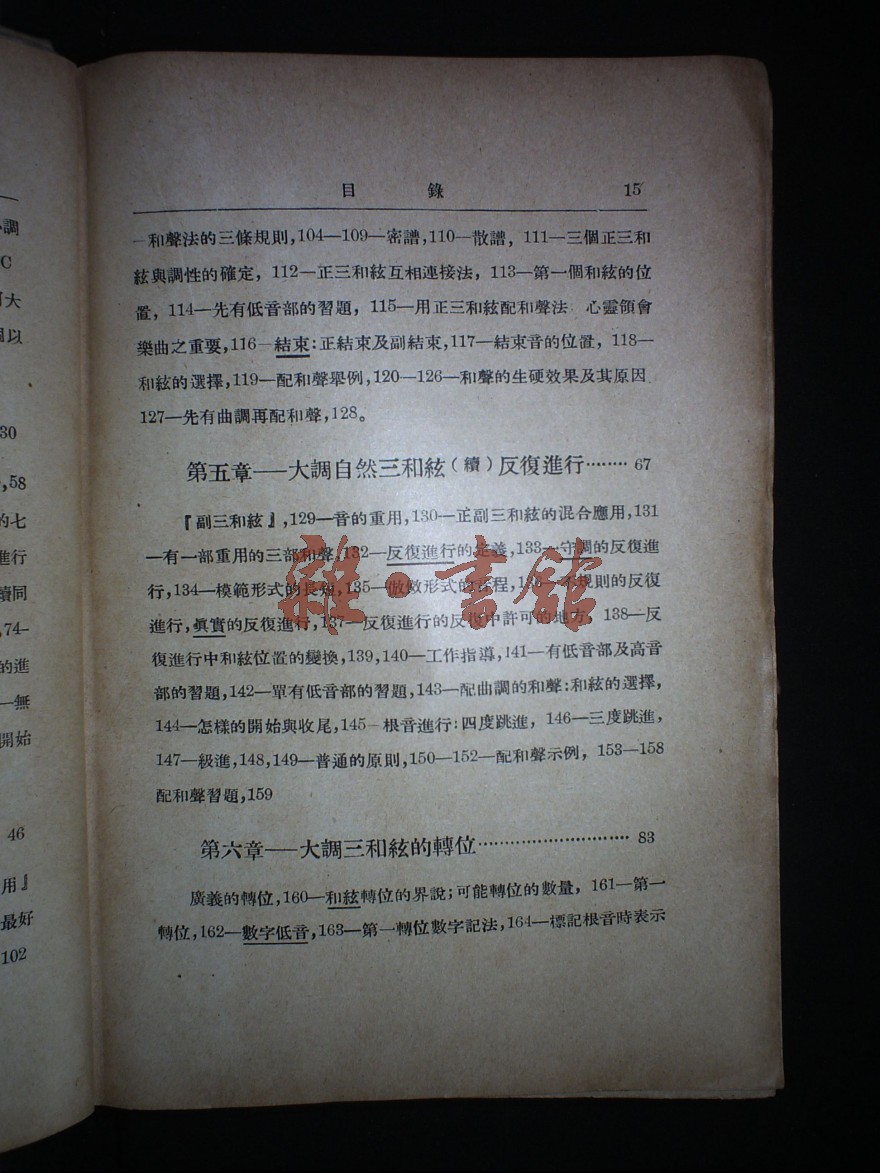 目 錄 15
—和聲法的三條規則,104—109—密譜,110—散譜, 111—三個正三和
絃與調性的確定, 112—正三和絃互相連接法, 113—第一個和絃的位
置, 114—先有低音部的習題, 115—用正三和絃配和聲法 心靈領會
樂曲之重要,116—結束:正結束及副結束,117—結束音的位置, 118—
和絃的選擇,119—配和聲舉例,120—126—和聲的生硬效果及其原因
127—先有曲調再配和聲,128。
第五章——大調自然三和絃(續)反復進行········ 67
『副三和絃』,129—音的重用,130—正副三和絃的混合應用,131
—有一部重用的三部和聲,132—反復進行的定義,133—守調的反復進
行,134—模範形式的長短,135—倣敚形式的音程,136—不規則的反復
進行,眞實的反復進行,137—反復進行的反復中許可的地方, 138—反
復進行中和絃位置的變換,139,140—工作指導,141—有低音部及高音
部的習題,142—單有低音部的習題,143—配曲調的和聲:和絃的選擇,
144—怎樣的開始與收尾,145—根音進行:四度跳進, 146—三度跳進,
147—級進,148,149—普通的原則,150—152—配和聲示例, 153—158
配和聲習題,159
第六章——大調三和絃的轉位··························· 83
廣義的轉位,160—和絃轉位的界說;可能轉位的數量, 161—第一
轉位,162—數字低音,163—第一轉位數字記法,164—標記根音時表示
調
C
大
以
30
,58
的七
進行
續同
,74-
的進
—無
開始
46
用』
最好
102
雜·書館